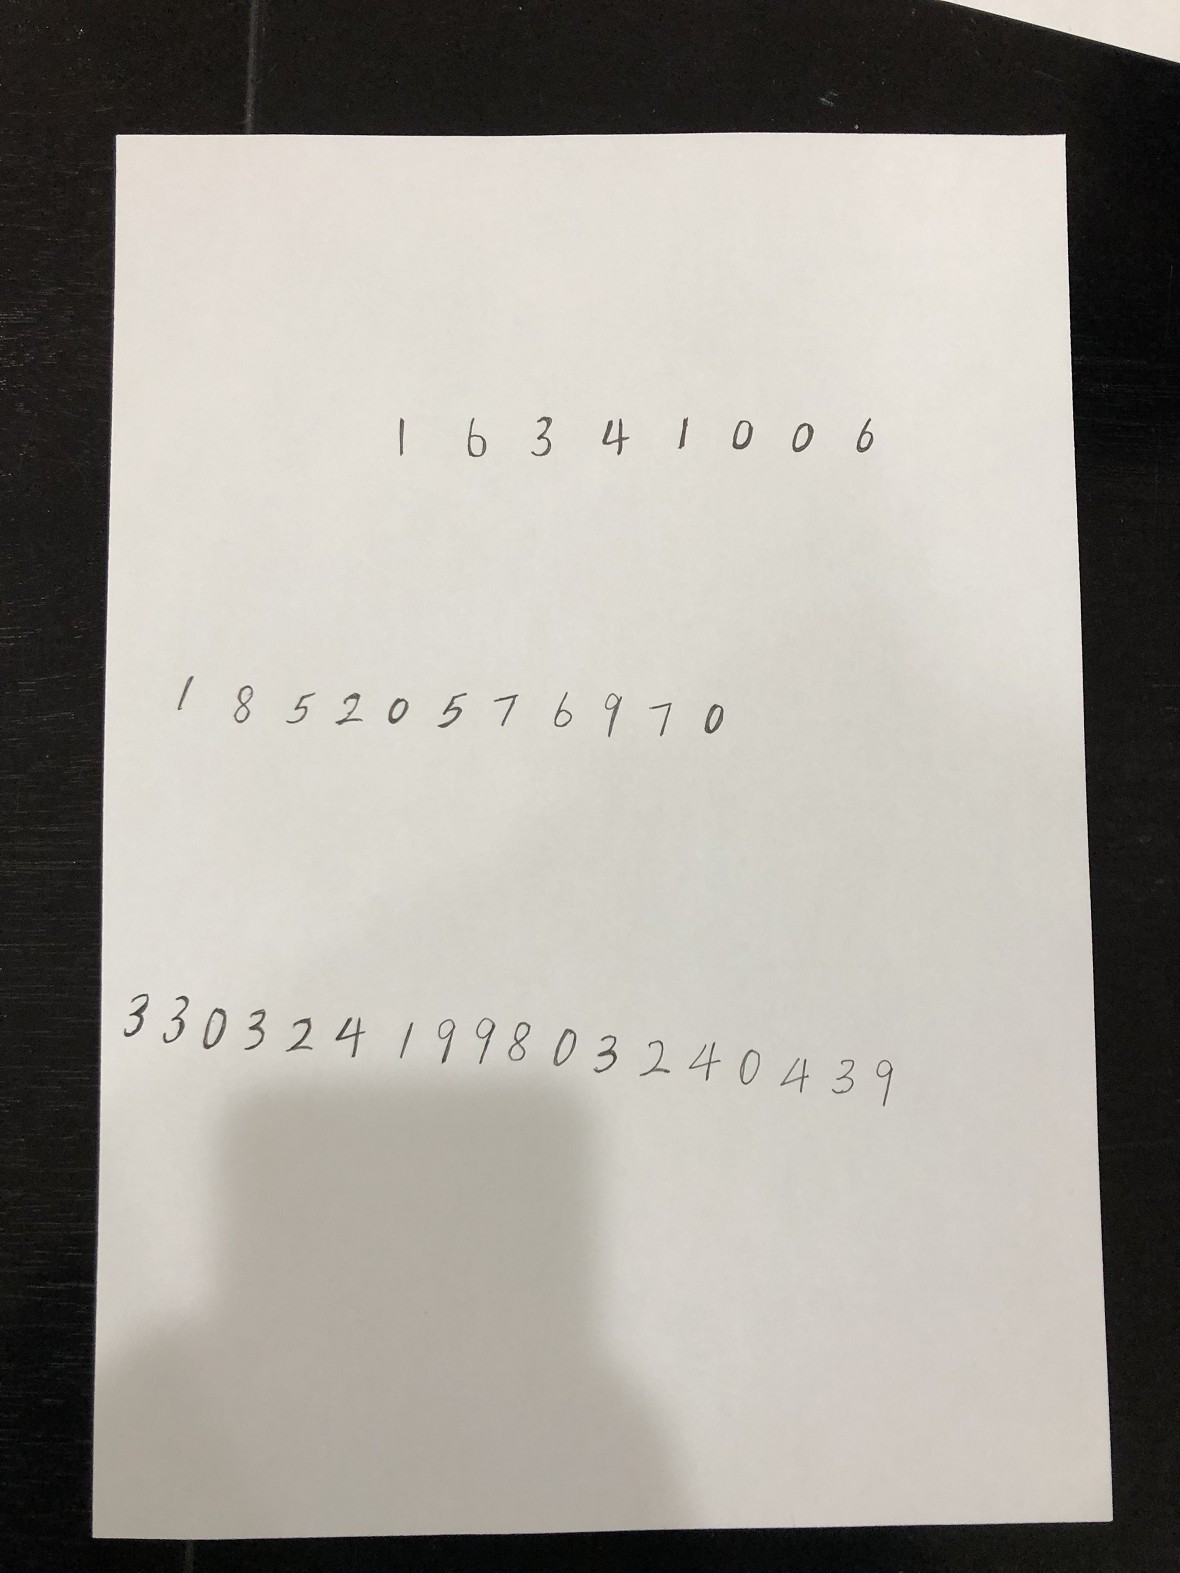 1 6 3 4 1 0 0 6
1 8 5 2 0 5 7 6 9 7 0
3 3 0 3 2 4 1 9 9 8 0 3 2 4 0 4 3 9